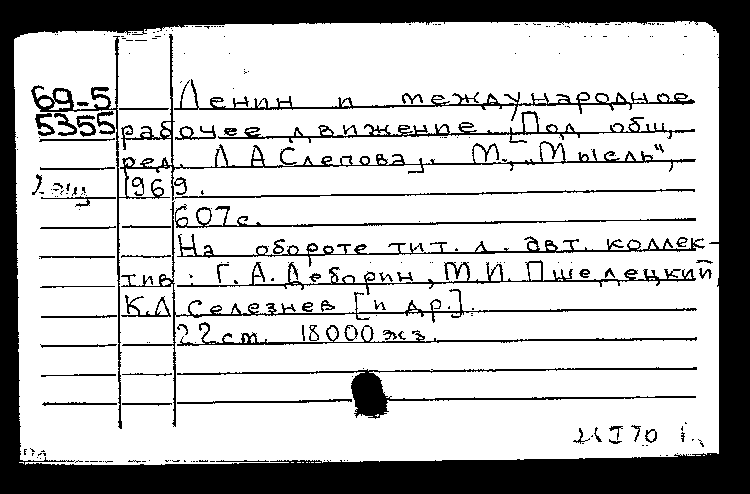 69-5 Ленин и международное
5355 рабочее движение. [Под общ.
ред. Л. А Слепова]. М., "Мысль",
2 экз 1969.
607с.
На обороте тит. л. авт. коллек-
тив: Г. А. Деборин, М. И. Пшедецкий,
К. Л Селезнев [и др.].
22 см. 18000 экз.
I 70